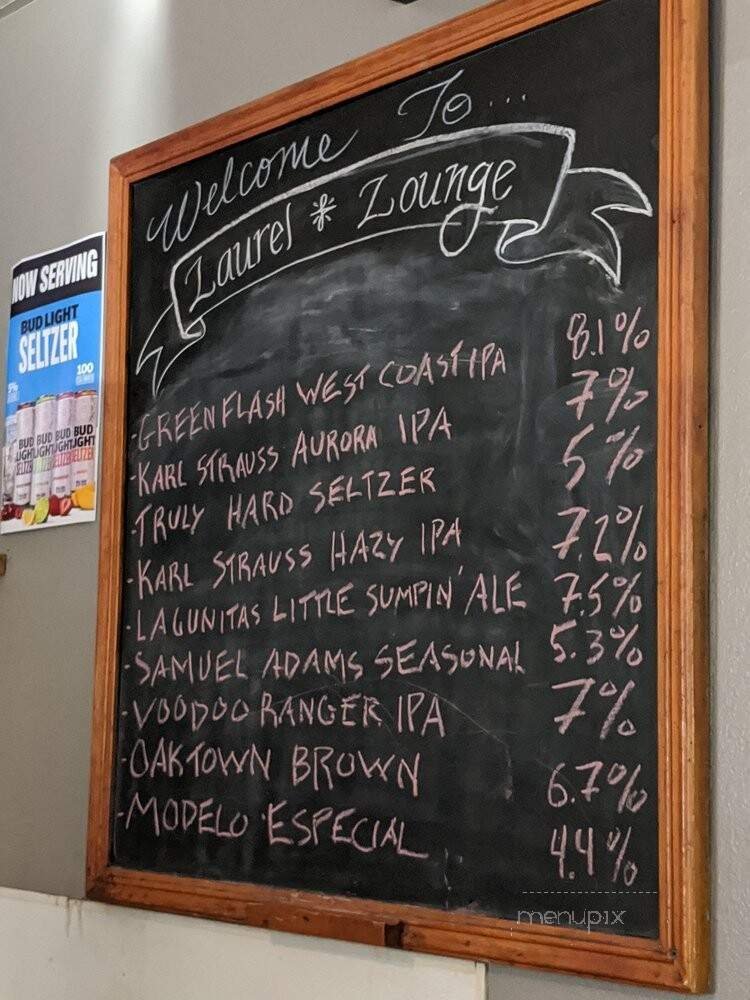 Welcome To...
Laurel * Lounge
-GREEN FLASH WEST COAST IPA 8.1%
-KARL STRAUSS AURORA IPA 7%
-TRULY HARD SELTZER 5%
-KARL STRAUSS HAZY IPA 7.2%
-LAGUNITAS LITTLE SUMPIN' ALE 7.5%
-SAMUEL ADAMS SEASONAL 5.3%
-VOODOO RANGER IPA 7%
-OAKTOWN BROWN 6.7%
-MODELO ESPECIAL 4.4%
NOW SERVING
BUD LIGHT
SELTZER
5%
100
BUD LIGHT SELTZER
menupix